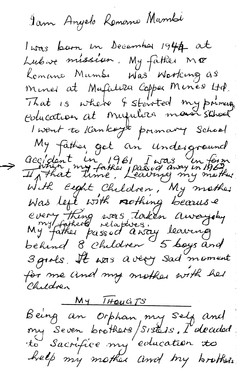 I am Angelo Romano Mumbi
I was born in December 1944 at
Lubwe mission. My father Mr
Romano Mumbi was working as
Miner at Mufulira Copper Mines Ltd.
That is where I started my primary
Education at Mufulira main School
I went to Kankoyo primary School
My father got an underground
accident in 1961 I was in form
when my father passed away in 1962
II that time. Leaving my mother
with Eight Children, My mother
was left with nothing because
every thing was taken away by
my fathers relatives.
My father passed away leaving
behind 8 children 5 boys and
3 girls. It was a very sad moment
for me and my mother with her
Children
My Thoughts
Being an Orphan, my self and
my seven brothers/sisters, I decided
to Sacrifice my education to
help my mother and my brothers